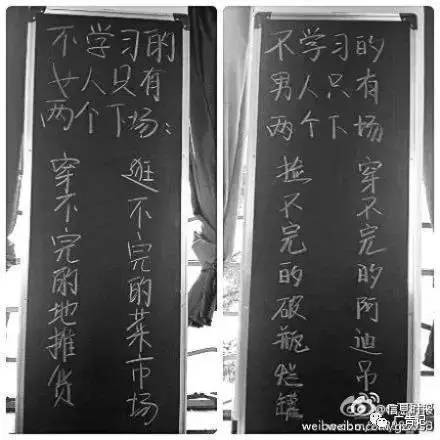 不学习的
女人只有
两个下场：
穿不完的地摊货
逛不完的菜市场
不学习的
男人只有
两个下场
捡不完的破瓶烂罐
穿不完的阿迪吊
@信息时报